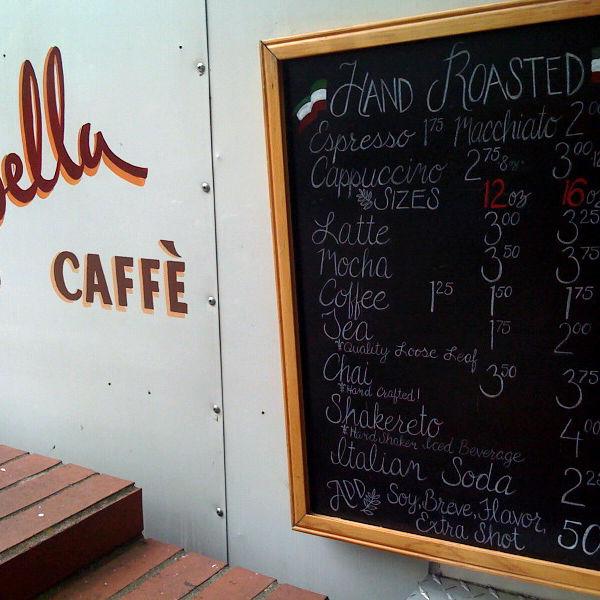 bella
CAFFÈ
HAND ROASTED
Espresso 1.75 Macchiato 2.00
Cappuccino 2.75 8oz 3.00 12
SIZES 12oz 16oz
Latte 3.00 3.25
Mocha 3.50 3.75
Coffee 1.25 1.50 1.75
Tea 1.75 2.00
*Quality Loose Leaf
Chai 3.50 3.75
*Hand Crafted!
Shakereto 4.00
*Hand Shaken Iced Beverage
Italian Soda 2.25
ADD Soy, Breve, Flavor, 50
Extra Shot